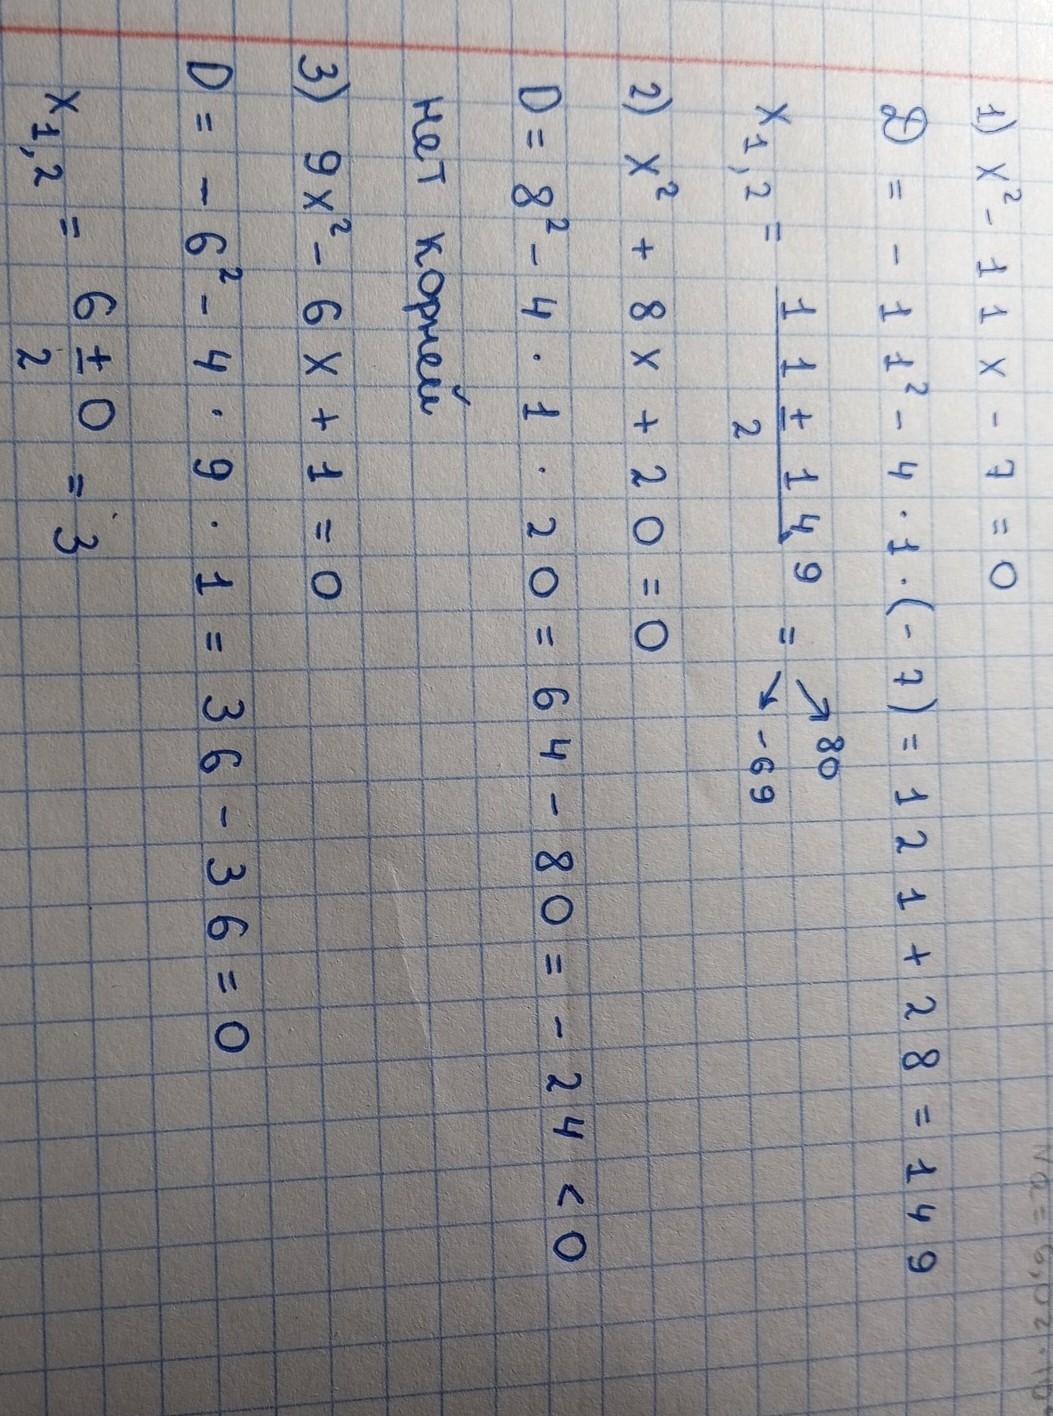 1) x² - 11x - 7 = 0
D = - 11² - 4 · 1 · (- 7) = 121 + 28 = 149
x1,2 = 11 ± 149 / 2 = ↗ 80 ↘ - 69
2) x² + 8x + 20 = 0
D = 8² - 4 · 1 · 20 = 64 - 80 = - 24 < 0
нет корней
3) 9x² - 6x + 1 = 0
D = - 6² - 4 · 9 · 1 = 36 - 36 = 0
x1,2 = 6 ± 0 / 2 = 3